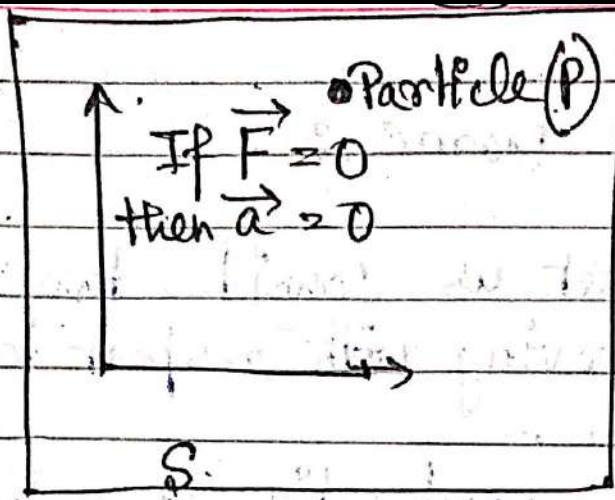 Particle (P)
If F⃗ = 0
then a⃗ = 0
S.